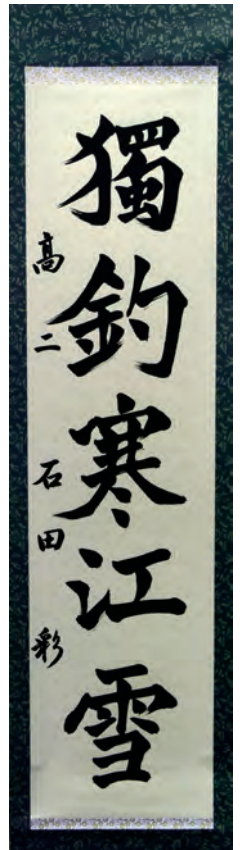 獨釣寒江雪
高二 石田 彩